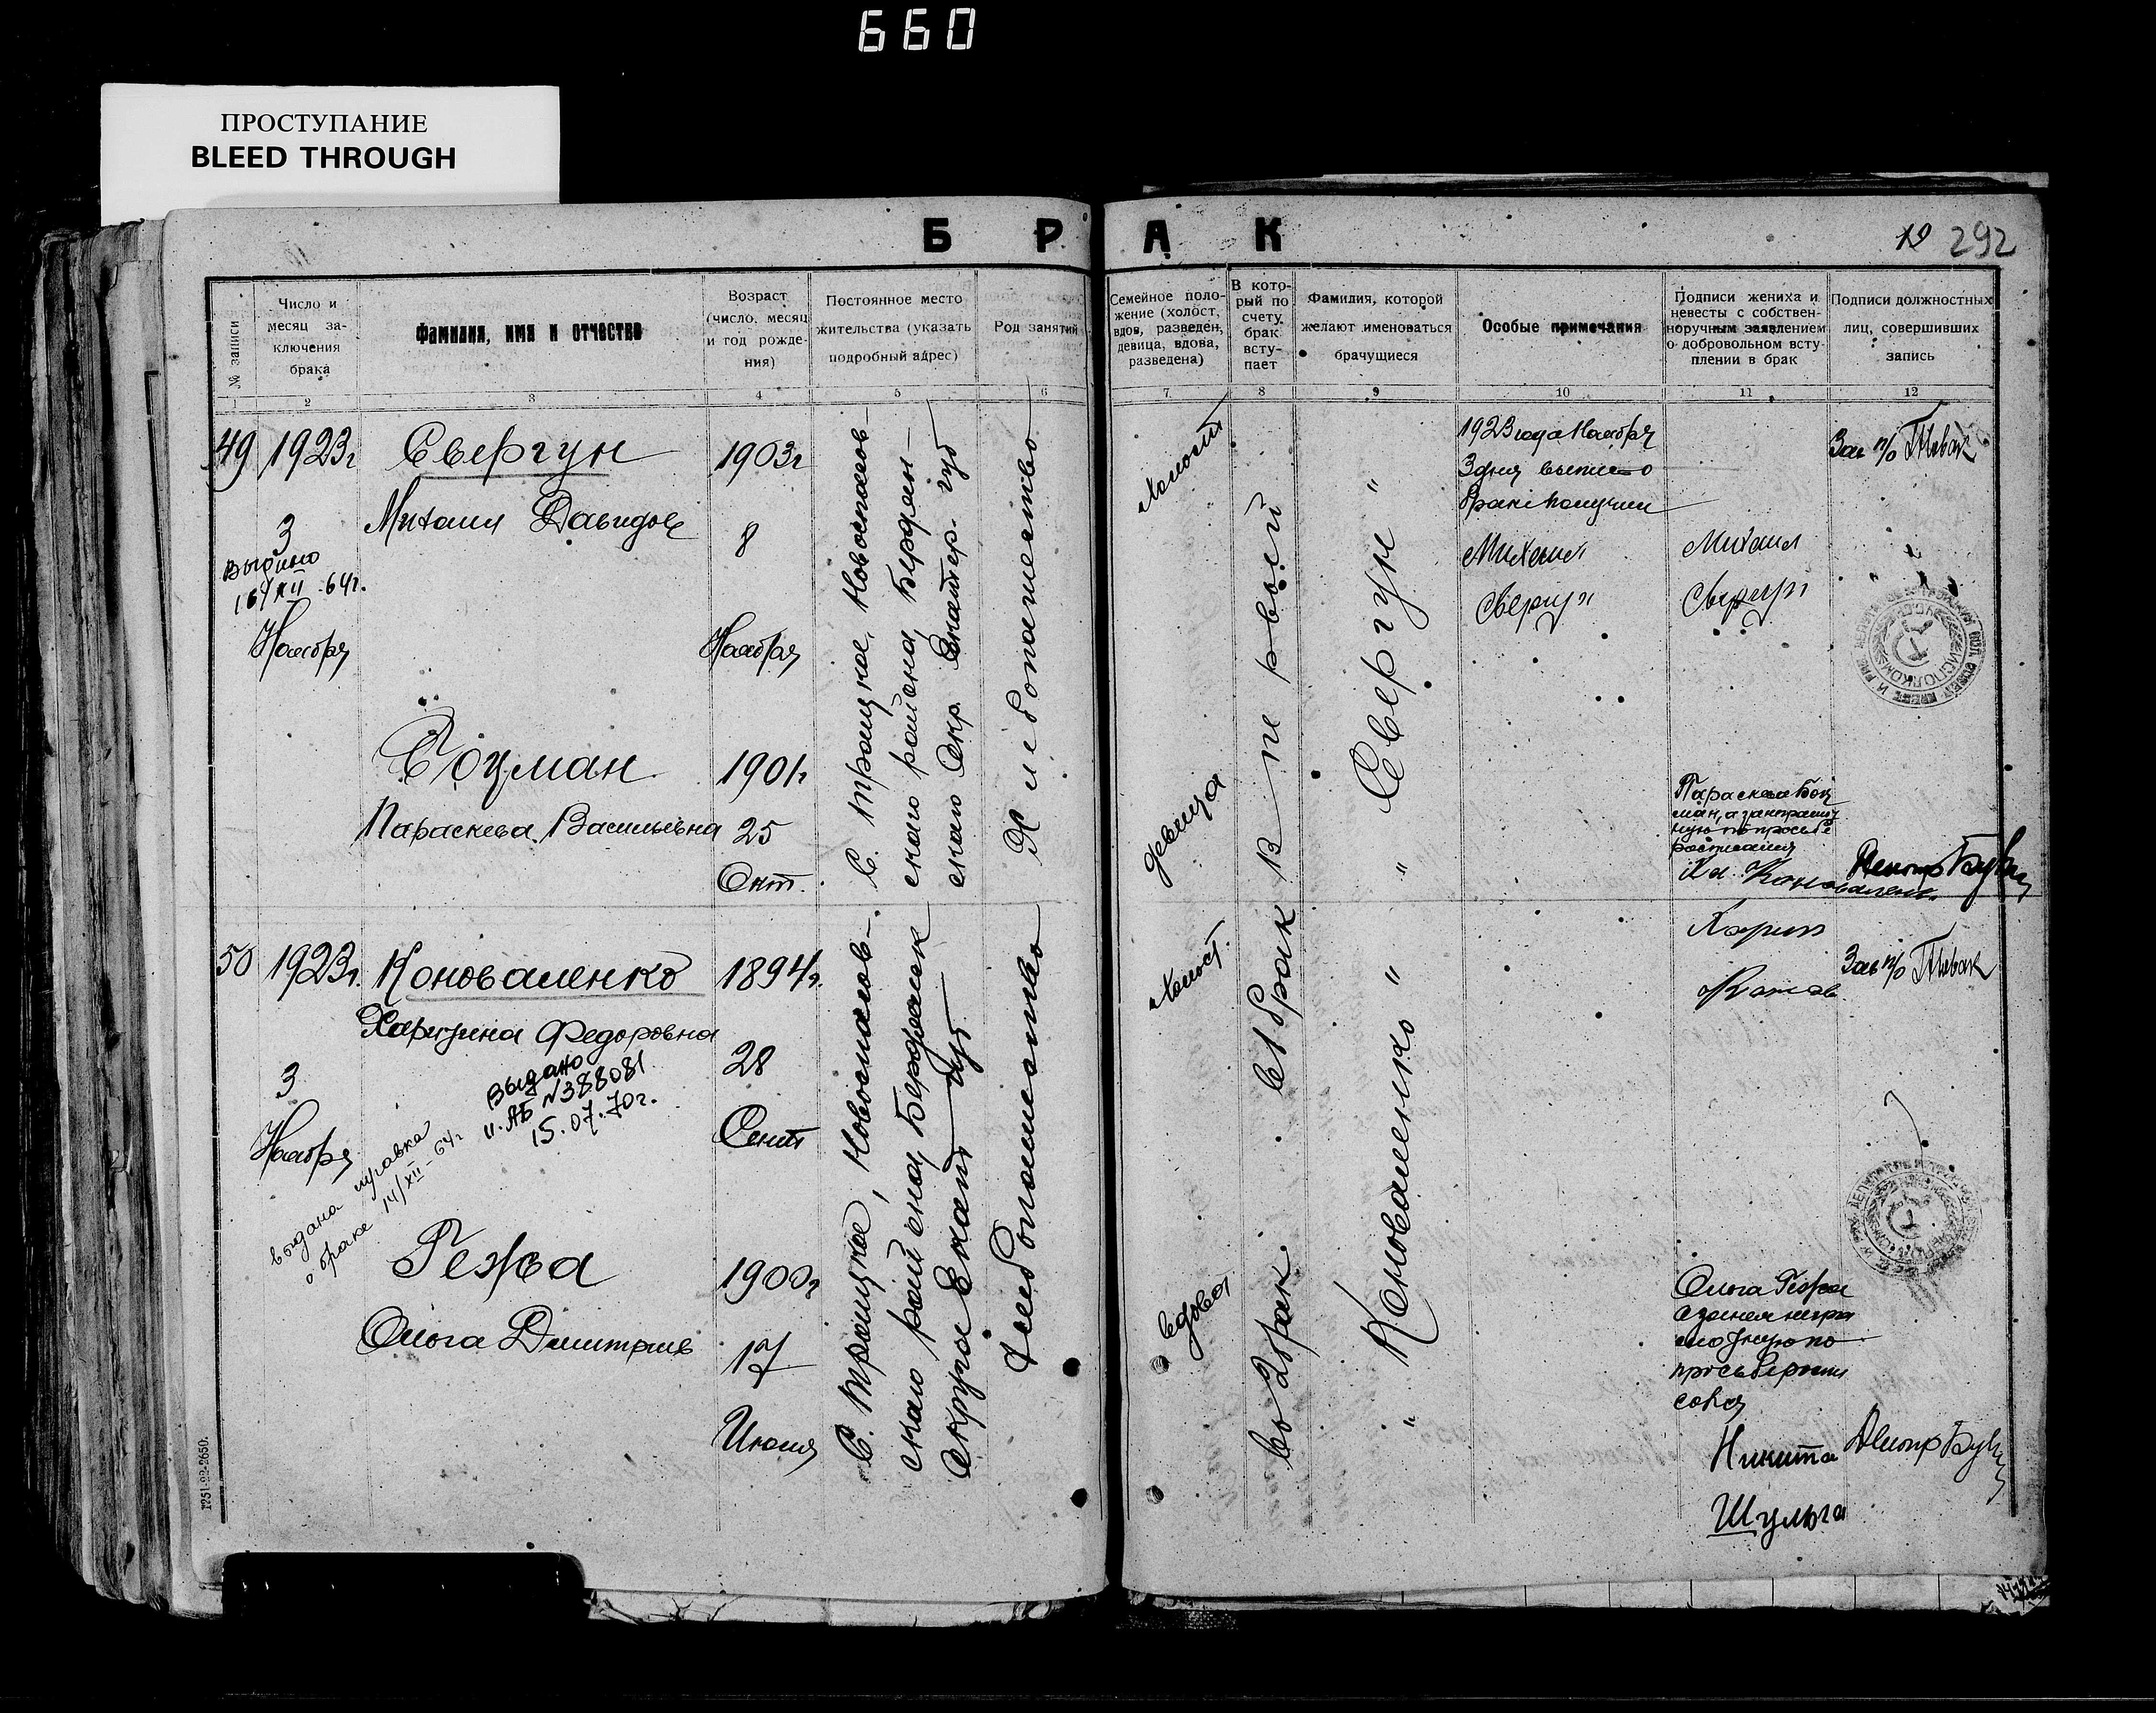 660
ПРОСТУПАНИЕ
BLEED THROUGH
Б Р А К
19 292
№ записи
Число и
месяц за-
ключения
брака
Фамилия, имя и отчество
Возраст
(число, месяц
и год рожде-
ния)
Постоянное место
жительства (указать
подробный адрес)
Род занятий
Семейное поло-
жение (холост,
вдов, разведен,
девица, вдова,
разведена)
В кото-
рый по
счету
брак
всту-
пает
Фамилия, которой
желают именоваться
брачущиеся
Особые примечания
Подписи жениха и
невесты с собствен-
норучным заявлением
о добровольном всту-
плении в брак
Подписи должностных
лиц, совершивших
запись
1 2 3 4 5 6 7 8 9 10 11 12
49
1923г
3
Выдано
16/XII-64г.
Ноября
Свергун
Михаил Давидов
1903г
8
Ноября
Боцман
Параскева Васильевна
1901г
25
Окт.
С. Троицкое, Новоспасов-
ского района, Бердян-
ского Окр. Екатер. губ
Хлебопашество
Холост
девица
В первый
" Свергун "
1923 года Ноября
3 дня выпись о
браке получил
Михаил
Свергун
Михаил
Свергун
Параскева Боц
ман, а за неграмот
ную по просьбе
расписался
Коноваленко
Зав п/о
50
1923г.
3
Ноября
Коноваленко
Харитина Федоровна
Выдано
АБ N388081
15.07.70г.
выдана справка
о браке 14/XII-64г
1894г.
28
Сент
Гежа
Ольга Дмитрие
1900г
17
Июля
С. Троицкое, Новоспасов-
ского района, Бердянск
Округа Екат губ
Хлебопашество
Холост.
вдова
в 1 брак
во 2 брак
" Коноваленко "
Харит
Конов
Ольга Гежа
а за неегра
мотную по
просьбе распи
сался
Никита
Шульга
Зав п/о
1251-22-2650.